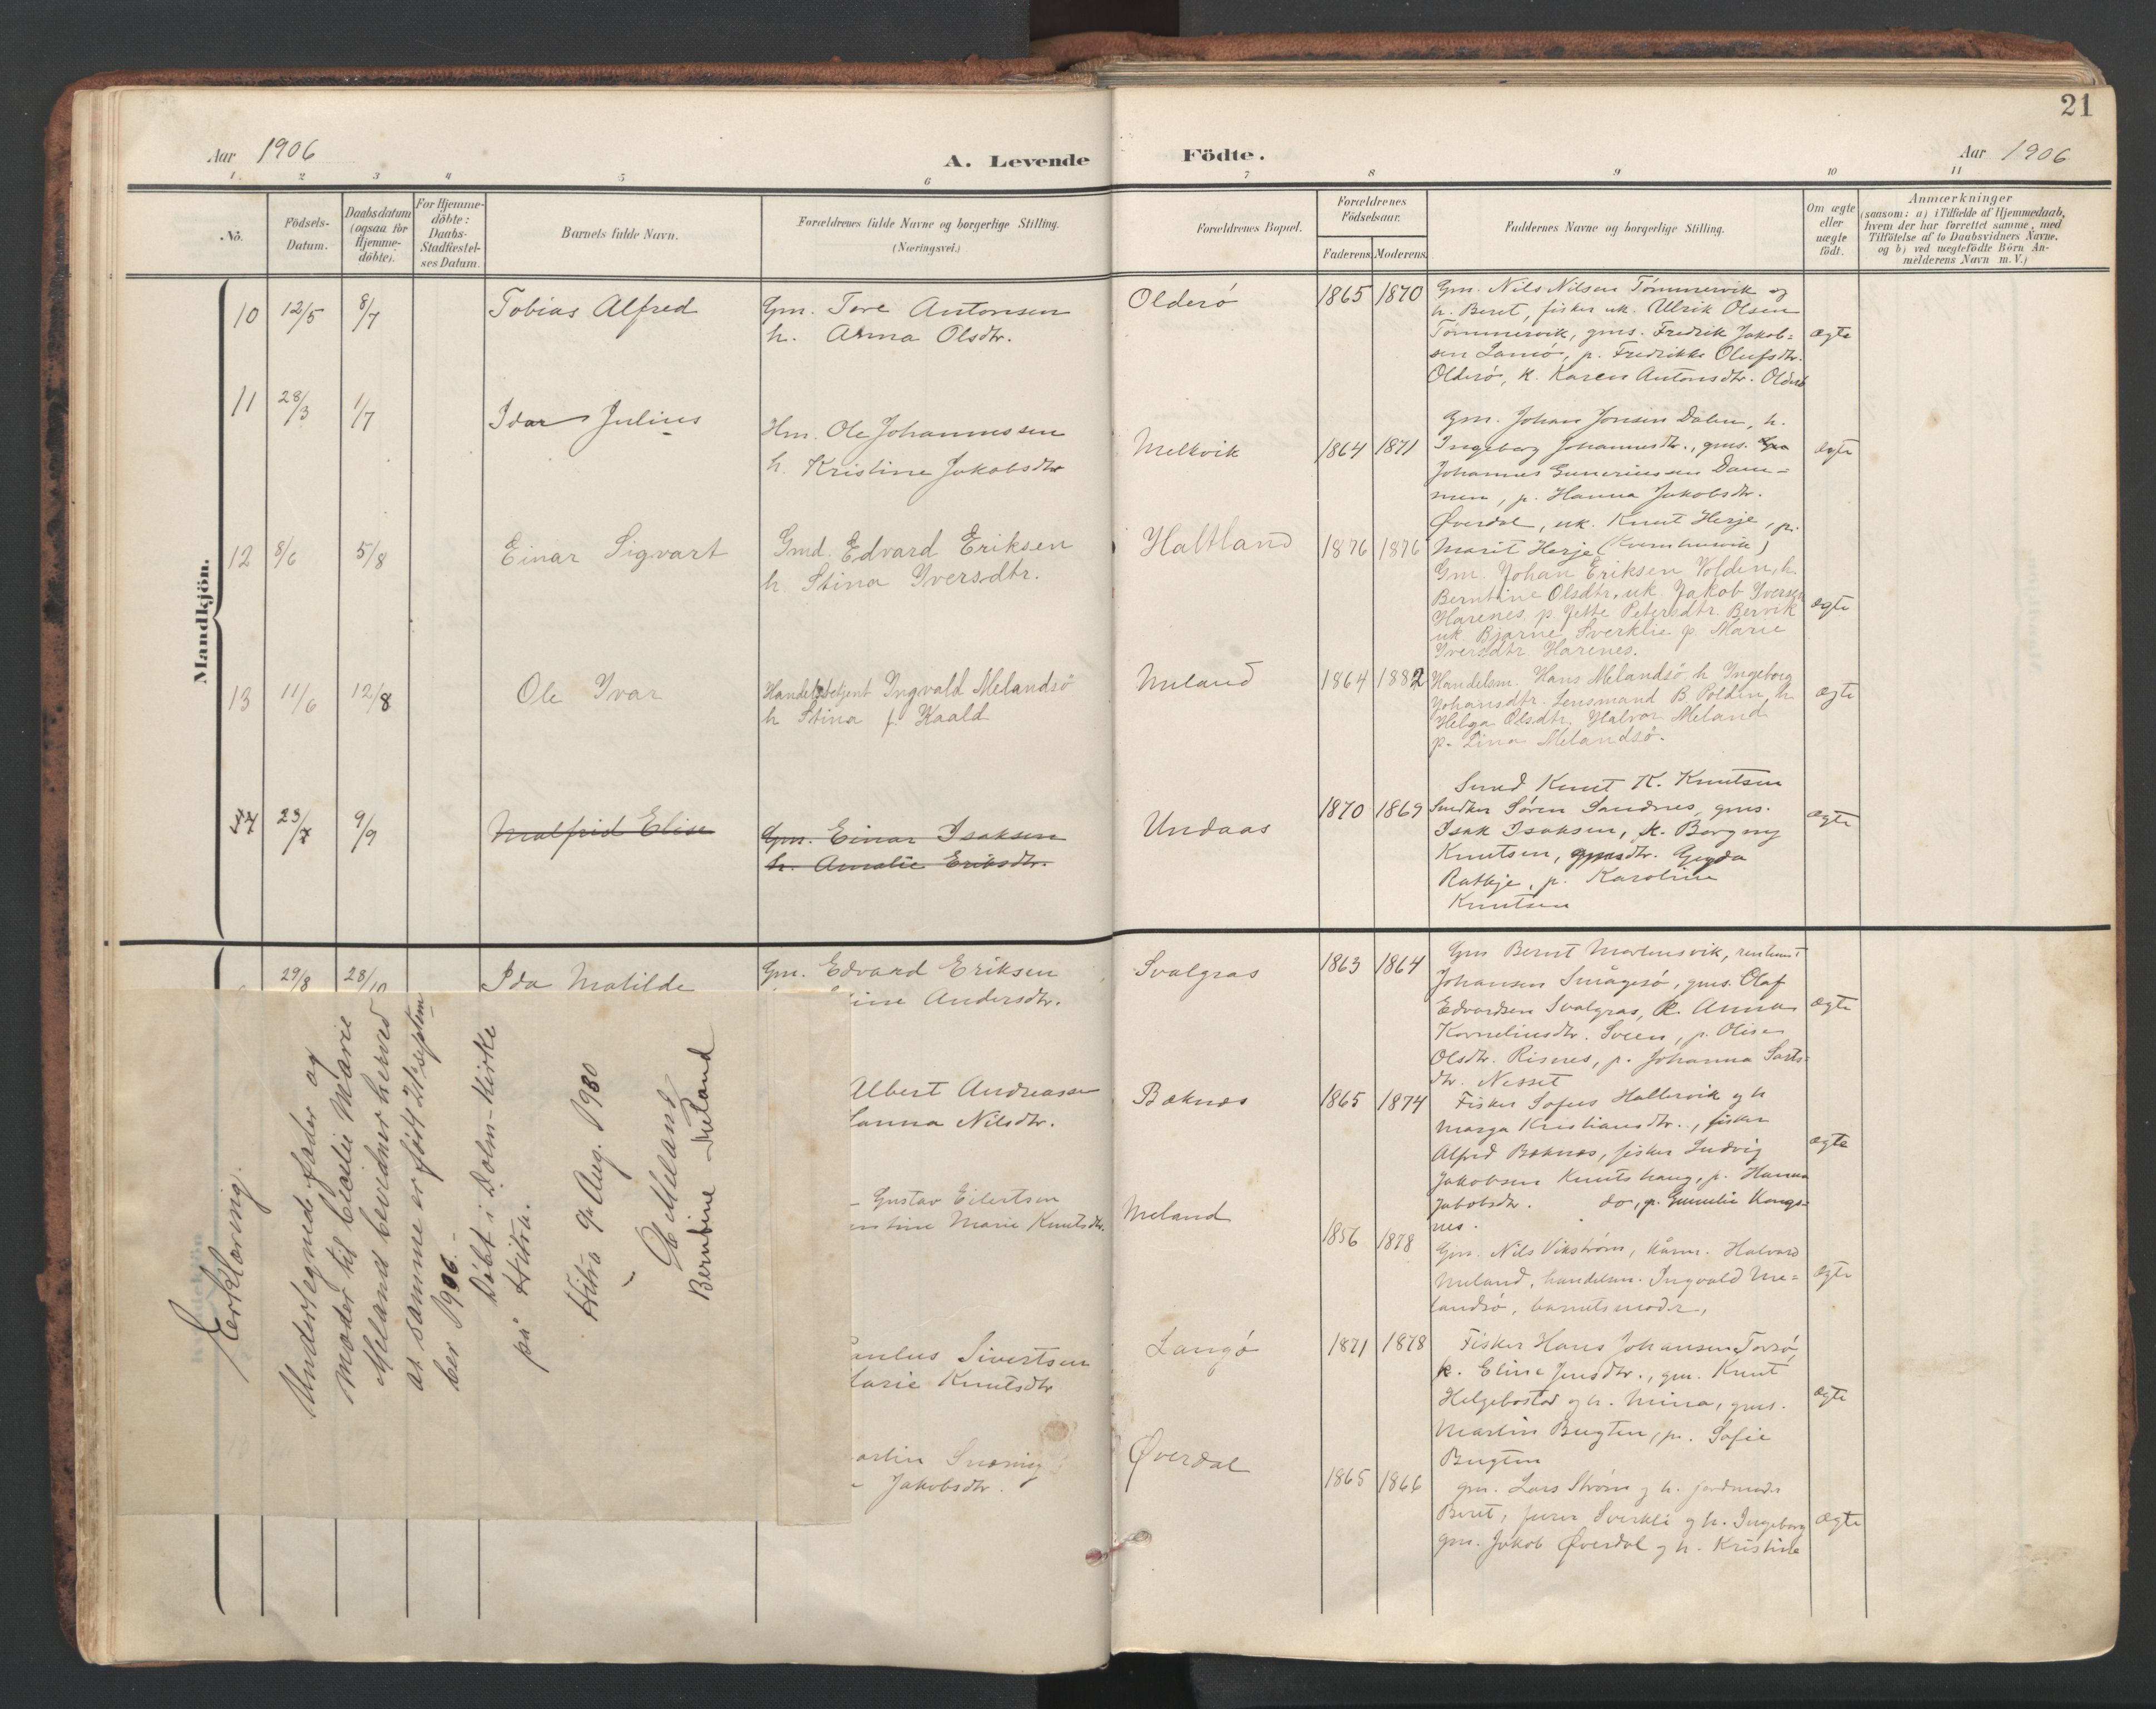 21
Aar 1906
A. Levende Födte.
Aar 1906
1 2 3 4 5 6 7 8 9 10 11
Nö.
Födsels-
Datum.
Daabsdatum
(ogsaa for
Hjemme-
döbte).
For Hjemme-
döbte:
Daabs-
Stadfæstel-
ses Datum.
Barnets fulde Navn.
Forældrenes fulde Navne og borgerlige Stilling.
(Næringsvei.)
Forældrenes Bopæl.
Forældrenes
Födselsaar.
Faderens. Moderens.
Faddernes Navne og borgerlige Stilling.
Om ægte
eller
uægte
födt.
Anmærkninger
(saasom: a) i Tilfælde af Hjemmedaab,
hvem der har forrettet samme, med
Tilföielse af to Daabsvidners Navne,
og b) ved uægtefödte Börn An-
melderens Navn m. V.)
Mandkjön.
10 12/5 8/7
Tobias Alfred
Gm. Tore Antonsen
h. Anna Olsdtr.
Olderö
1865 1870
Gm. Nils Nilsen Tømmervik og
h. Beret, fisker uk. Ulrik Olsen
Tømmervik, gms. Fredrik Jakob-
sen Lamö, p. Fredrikke Olufsdtr.
Olderö, k. Karen Antonsdtr. Olderö
ægte
11 28/3 1/7
Idar Julius
Hm. Ole Johannessen
h. Kristine Jakobsdtr
Melkvik
1864 1871
Gm. Johan Jonsen Dalen, h.
Ingeborg Johannesdtr., gms.
Johannes Guneriussen Dam-
men, p. Hanna Jakobsdtr.
Øverdal, uk. Knut Herje, p.
Marit Herje (Kvernhusvik)
ægte
12 8/6 5/8
Einar Sigvart
Gmd. Edvard Eriksen
h. Stina Iversdtr.
Haltland
1876 1876
Gm. Johan Eriksen Volden, h.
Berntine Olsdtr. uk. Jakob Iversen
Harenes, p. Jette Petersdtr. Bervik
uk. Bjarne Sverklie p. Marie
Iversdtr. Harenes.
ægte
13 11/6 12/8
Ole Ivar
Handelsbetjent Ingvald Melandsö
h Stina f. Kaald
Meland
1864 1882
Handelsm. Hans Melandsö h Ingeborg
Johansdtr. Lensmand B. Polden, h.
Helga Olsdtr. Halvor Meland
p. Lina Melandsö.
ægte
14 23/7 9/9
Malfrid Elise
Gm. Einar Isaksen
h. Amalie Eriksdtr.
Undaas
1870 1869
Smed Knut K. Knutsen
Snedker Søren Sandnes, gms.
Isak Isaksen, k. Borgny
Knutsen, gmsdtr. Gyda
Ratkje, p. Karoline
Knutsen
ægte
29/8 28/10
Ida Matilde
Gm. Edvard Eriksen
ine Andersdtr.
Svalgras
1863 1864
Gm Bernt Martensvik,
Johansen Smågesö, gms. Olaf
Edvardsen Svalgras, k. Anna
Korneliusdtr. Sveen, p. Olise
Olsdtr. Risnes, p. Johanna Larts-
dtr. Nesset
ægte
Albert Andreassen
anna Nilsdtr.
Baknes
1865 1874
Fisker Sofus Hallervik og h
Marga Kristiansdtr., fisker
Alfred Baknes, fisker Ludvig
Jakobsen Knutshaug, p. Hanna
Jakobsdtr. do, p. Gunelie Kongs-
nes.
ægte
Gustav Eilertsen
Marie Knutsdtr.
Meland
1856 1878
Gm. Nils Vikstrøm, kårm. Halvard
Meland, handelsm. Ingvald Me-
landsö, barnets moder,
ægte
aulus Sivertsen
arie Knutsdtr
Langö
1871 1878
Fisker Hans Johansen Torsö,
k. Eline Jensdtr., gm. Knut
Helgebostad og h. Mina, gms.
Martin Bugten, p. Sofie
Bugten
ægte
artin Snøning
Jakobsdtr.
Øverdal
1865 1866
gm. Lars Strøm og h. jordmoder
Beret, furer Sverkli og h. Ingeborg
gm. Jakob Øverdal og h. Kristine
ægte
Erklæring.
Undertegnede fader og
moder til Cecilie Marie
Meland bevidner herved
at samme er født 21 septem
ber 1906.-
Döbt i Dolm-kirke
på Hitra.
Hitra 9/ Aug. 1980
O Meland
Berntine Meland